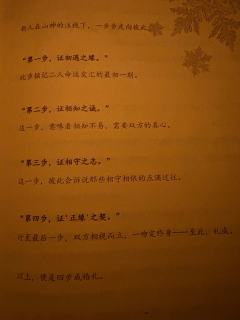 新人在山神的注视下，一步步走向彼此
“第一步，证初遇之缘。”
此步铭记二人命运交汇的最初一刻。
“第二步，证相知之诚。”
这一步，意味着相知不易，需要双方的真心。
“第三步，证相守之志。”
这一步，彼此会诉说那些相守相依的点滴过往。
“第四步，证‘正缘’之契。”
行至最后一步，双方相视而立，一吻定终身——至此，礼成。
以上，便是四步成婚礼。